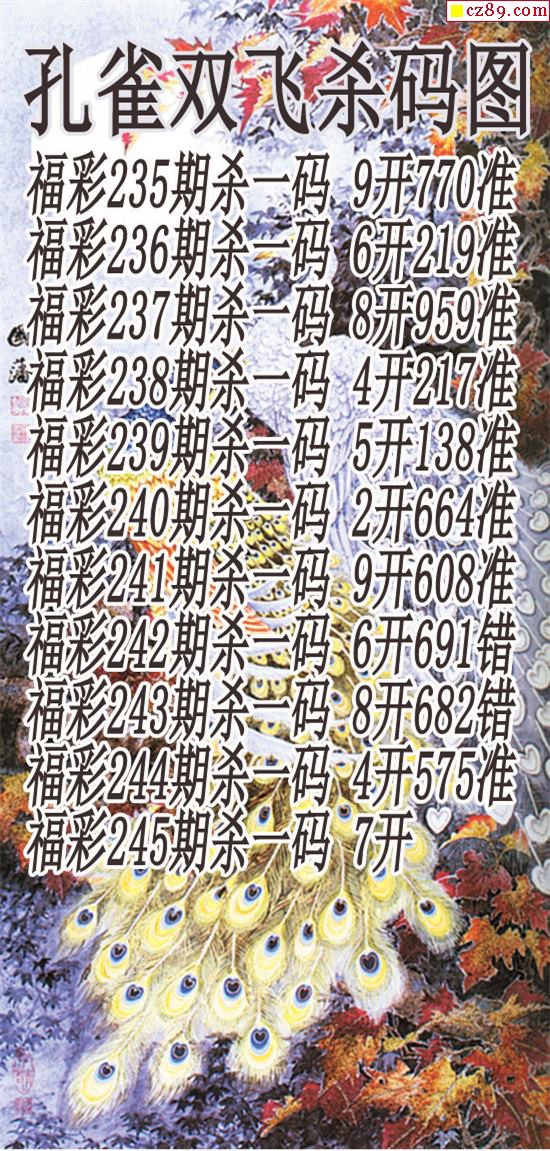 cz89.com
孔雀双飞杀码图
福彩235期杀一码 9开770准
福彩236期杀一码 6开219准
福彩237期杀一码 8开959准
福彩238期杀一码 4开217准
福彩239期杀一码 5开138准
福彩240期杀一码 2开664准
福彩241期杀一码 9开608准
福彩242期杀一码 6开691错
福彩243期杀一码 8开682错
福彩244期杀一码 4开575准
福彩245期杀一码 7开